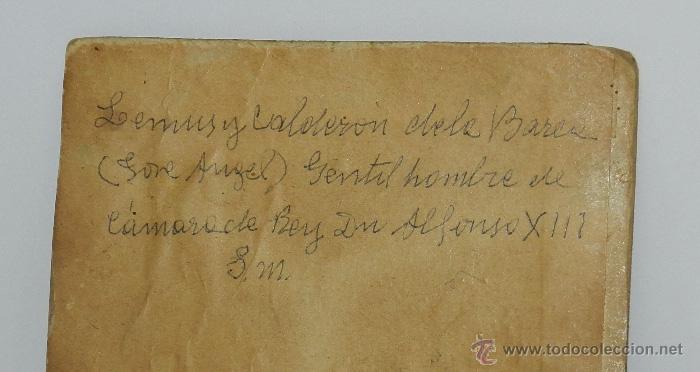 Lemus y Calderon de la Barca
(Jose Angel) Gentil hombre de
Cámara de Rey Dn Alfonso XIII
S.M.
todocoleccion
www.todocoleccion.net